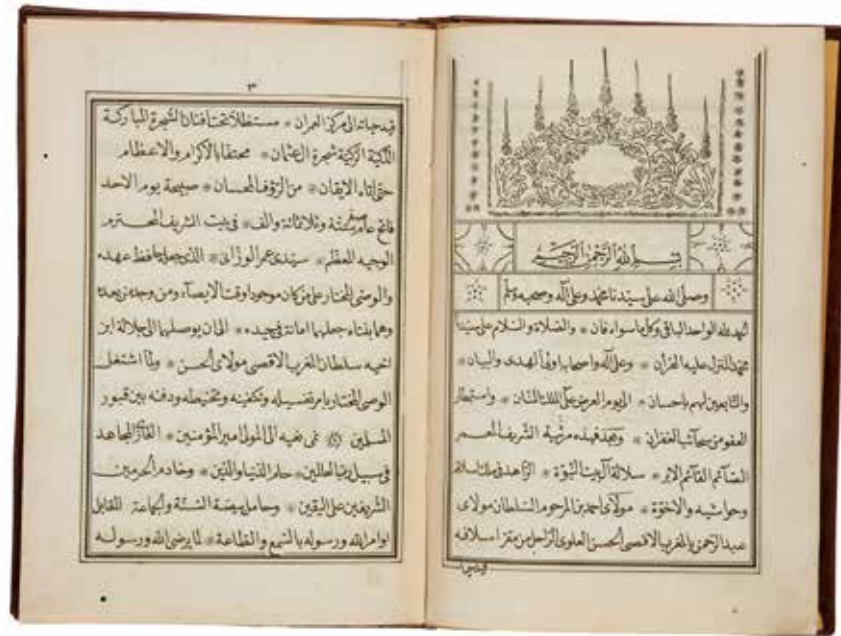 بِسْمِ اللهِ الرَّحْمٰنِ الرَّحِيمِ
وصلى الله على سيدنا محمد وعلى آله وصحبه وسلم
الحمد لله الواحد الباقى وكل ما سواه فان * والصلاة والسلام على سيدنا
محمد المنزل عليه القرآن * وعلى آله واصحابه اولى الهدى والبيان *
والتابعين لهم باحسان * الى يوم العرض على الملك المنان * واستمطار
العفو من سحائب الغفران * وبعد فهذه مرثية الشريف العمر
الصائم القائم الابر * سلالة آل بيت النبوة * الزاهد فى ملك اسلافه
وحواشيه والاخوة * مولاى احمد بن المرحوم السلطان مولاى
عبد الرحمن بالمغرب الاقصى الحسن العلوى الراحل من مقر اسلافه
٣
قيد حياته الى مركز العمران * مستظلا تحت افنان الشجرة المباركة
الزكية شجرة آل عثمان * محتفا بالاكرام والاعظام
حتى اتاه الايقان * من الرؤف المحسان * صبيحة يوم الاحد
فاتح عام ستة وثلاثمائة والف * فى بيت الشريف المحترم
الوجيه المعظم * سيدى عمر الوزانى * الذى جعله حافظ عهده
والوصى المختار على من كان موجودا وقت الايصاء ومن وجد من بعده
وهما بنتاه جعلهما امانة فى جيده * الى ان يوصلهما الى جلالة ابن
اخيه سلطان المغرب الاقصى مولاى الحسن * ولما اشتغل
الوصى المختار بامر تغسيله وتكفينه وتحنيطه ودفنه بين قبور
المسلمين نمى نعيه الى المولى امير المؤمنين * الغازى المجاهد
فى سبيل رب العالمين * حامى الدنيا والدين * وخادم الحرمين
الشريفين على اليقين * وحامل بيضة السنة والجماعة المقابل
اوامر الله ورسوله بالسمع والطاعة * لما يرضى الله ورسوله